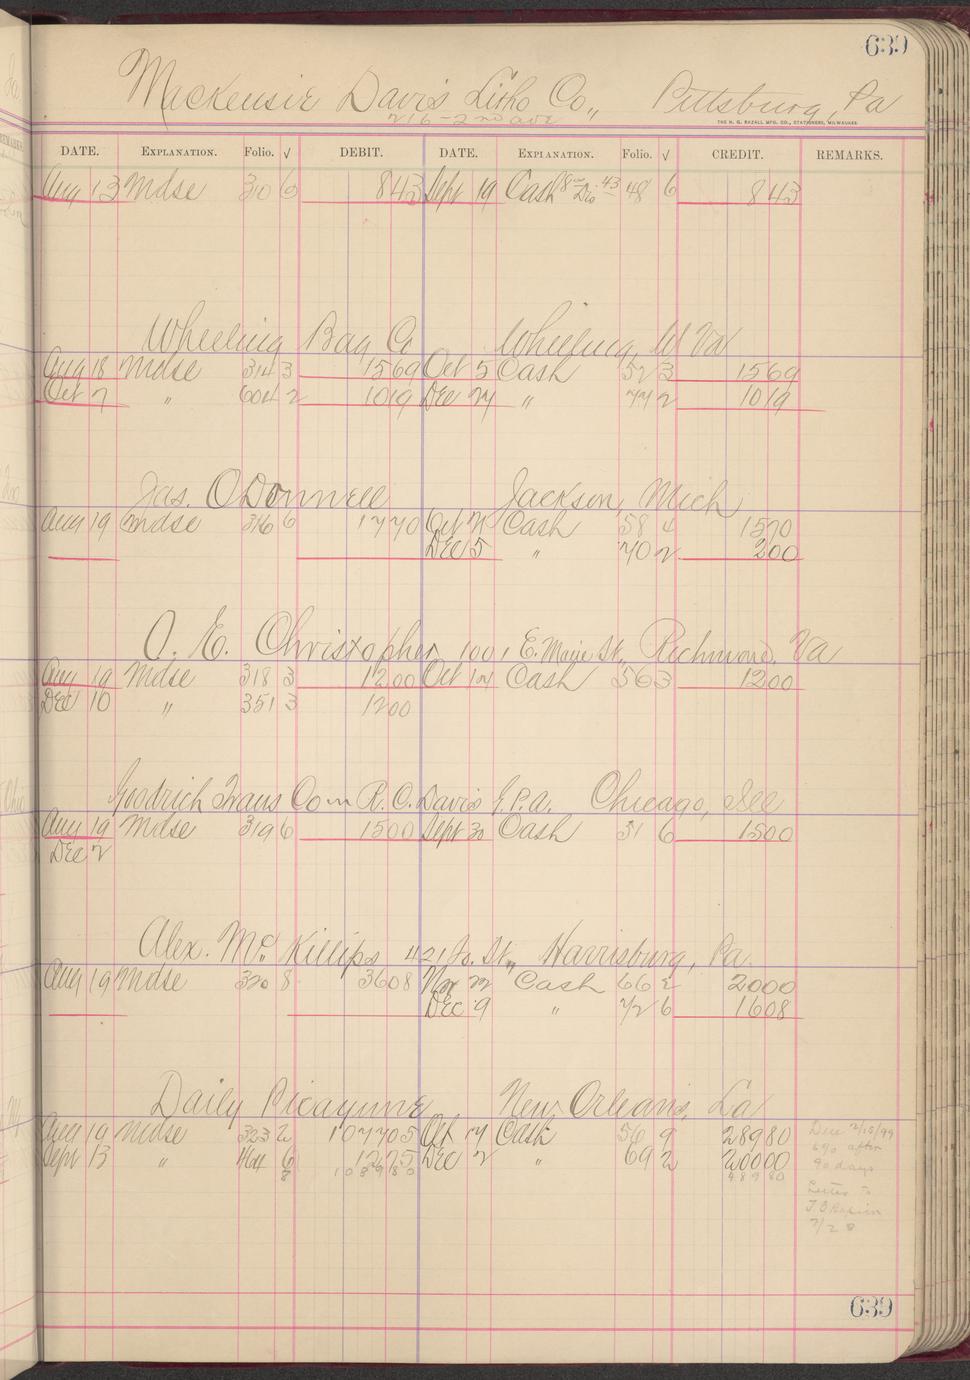 639
Mackensie Davis Litho Co., Pittsburg, Pa
216-2nd ave
THE H. G. RAZALL MFG. CO., STATIONERS, MILWAUKEE.
DATE. EXPLANATION. Folio. √ DEBIT. DATE. EXPLANATION. Folio. √ CREDIT. REMARKS.
Aug 13 Mdse 310 6 843 Sept 19 Cash 8 00 Dis 43 48 6 843
Wheeling Bag Co Wheeling, W Va
Aug 18 Mdse 314 3 1569 Oct 5 Cash 52 3 1569
Oct 7 " 604 2 1019 Dec 24 " 77 2 1019
Jas. O'Donnell Jackson, Mich
Aug 19 Mdse 316 6 1770 Oct 21 Cash 58 4 1570
Dec 5 " 70 2 200
O. E. Christopher, 1001 E. Main St., Richmond, Va
Aug 19 Mdse 318 3 1200 Oct 14 Cash 56 3 1200
Dec 10 " 351 3 1200
Goodrich Trans Com R. C. Davis G.P.A. Chicago, Ill
Aug 19 Mdse 319 6 1500 Sept 30 Cash 51 6 1500
Dec 2
Alex. McKillips 421 St., Harrisburg, Pa.
Aug 19 Mdse 320 8 3608 Nov 22 Cash 66 2 2000
Dec 9 " 72 6 1608
Daily Picayune New Orleans, La
Aug 19 Mdse 323 2 107705 Oct 17 Cash 56 9 28980
Sept 13 " 464 6 1275 Dec 2 " 69 2 20000
8 108980 48980
Due 2/15/99
6% after
90 days
Letter to
7/28
639